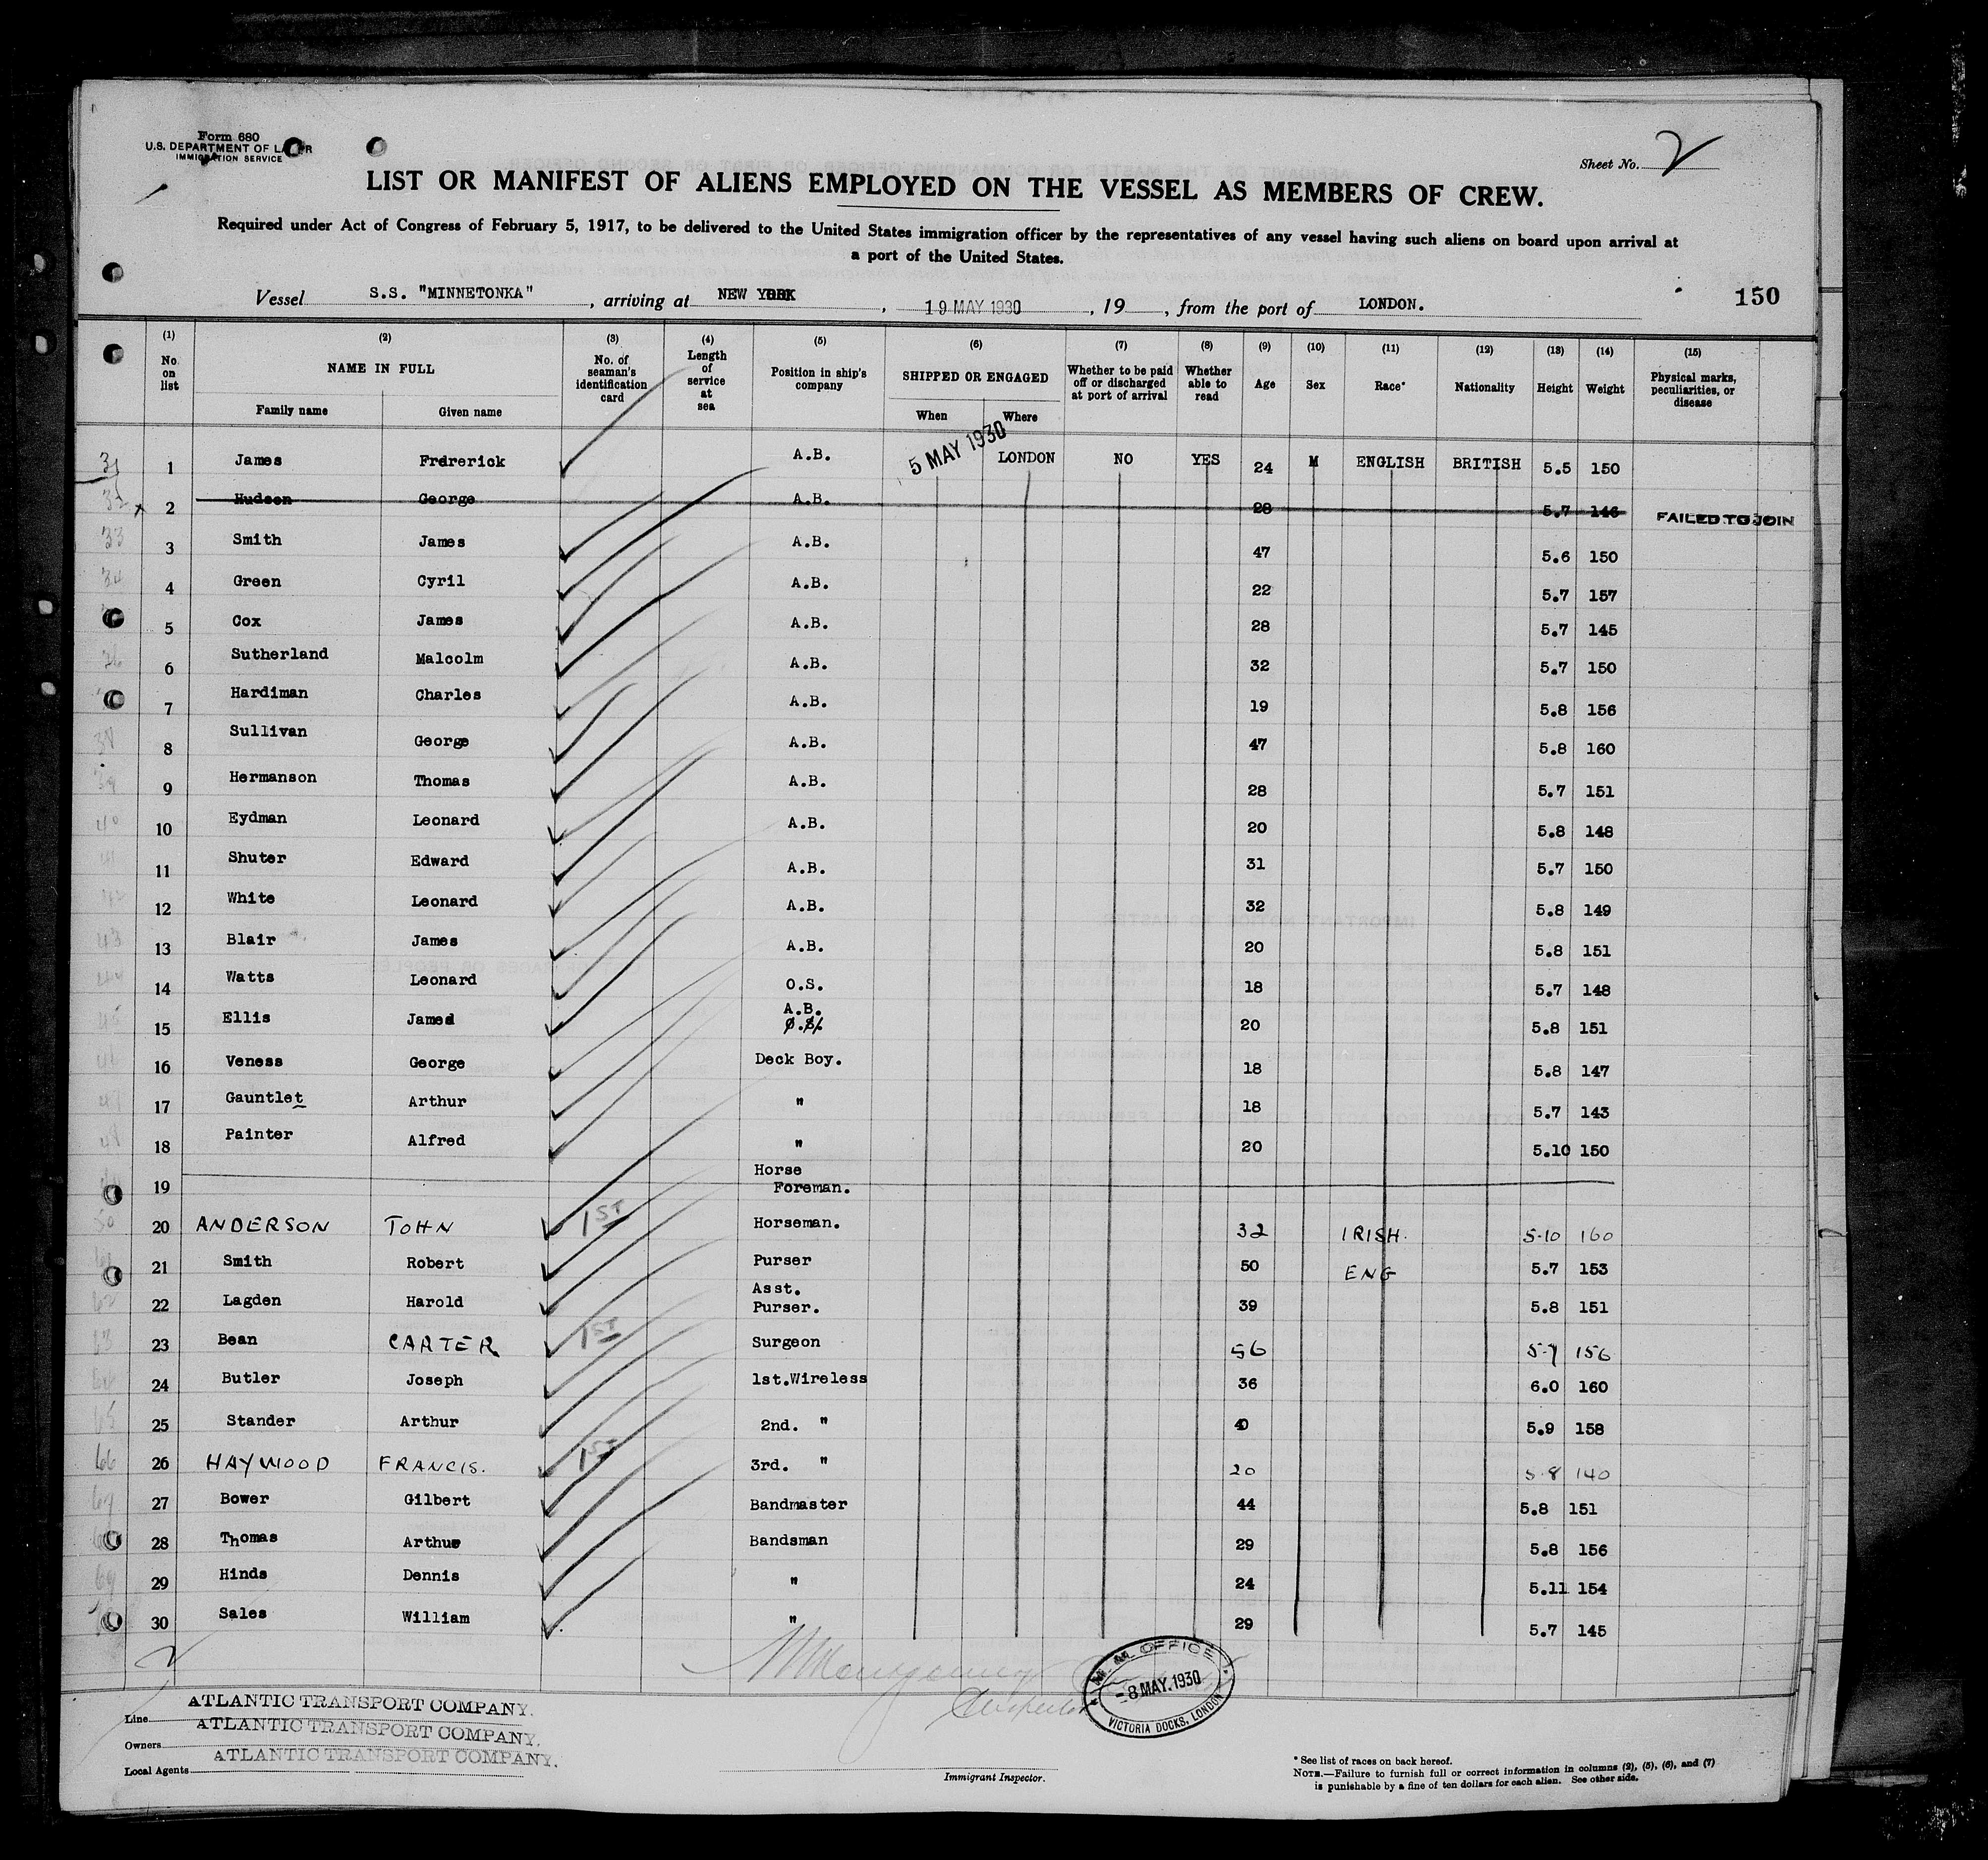 Form 680
U.S. DEPARTMENT OF LABOR
IMMIGRATION SERVICE
Sheet No. 2
LIST OR MANIFEST OF ALIENS EMPLOYED ON THE VESSEL AS MEMBERS OF CREW.
Required under Act of Congress of February 5, 1917, to be delivered to the United States immigration officer by the representatives of any vessel having such aliens on board upon arrival at
a port of the United States.
Vessel S.S. "MINNETONKA", arriving at NEW YORK, 19 MAY 1930, 19, from the port of LONDON.
150
(1) No. on list (2) NAME IN FULL Family name Given name (3) No. of seaman's identification card (4) Length of service at sea (5) Position in ship's company (6) SHIPPED OR ENGAGED When Where (7) Whether to be paid off or discharged at port of arrival (8) Whether able to read (9) Age (10) Sex (11) Race* (12) Nationality (13) Height (14) Weight (15) Physical marks, peculiarities, or disease
31 1 James Frdrerick A.B. 5 MAY 1930 LONDON NO YES 24 M ENGLISH BRITISH 5.5 150
32 x 2 Hudson George A.B. 28 5.7 146 FAILED TO JOIN
33 3 Smith James A.B. 47 5.6 150
34 4 Green Cyril A.B. 22 5.7 157
5 Cox James A.B. 28 5.7 145
36 6 Sutherland Malcolm A.B. 32 5.7 150
7 Hardiman Charles A.B. 19 5.8 156
38 8 Sullivan George A.B. 47 5.8 160
39 9 Hermanson Thomas A.B. 28 5.7 151
40 10 Eydman Leonard A.B. 20 5.8 148
41 11 Shuter Edward A.B. 31 5.7 150
42 12 White Leonard A.B. 32 5.8 149
43 13 Blair James A.B. 20 5.8 151
44 14 Watts Leonard O.S. 18 5.7 148
45 15 Ellis James A.B. O.S. 20 5.8 151
46 16 Veness George Deck Boy. 18 5.8 147
47 17 Gauntlet Arthur " 18 5.7 143
48 18 Painter Alfred " 20 5.10 150
19 Horse Foreman.
50 20 ANDERSON JOHN 1ST Horseman. 32 IRISH. 5-10 160
21 Smith Robert Purser 50 ENG 5.7 153
62 22 Lagden Harold Asst. Purser. 39 5.8 151
63 23 Bean CARTER 1ST Surgeon 56 5-7 156
64 24 Butler Joseph 1st.Wireless 36 6.0 160
65 25 Stander Arthur 2nd. " 40 5.9 158
66 26 HAYWOOD FRANCIS. 1ST 3rd. " 20 5-8 140
67 27 Bower Gilbert Bandmaster 44 5.8 151
28 Thomas Arthur Bandsman 29 5.8 156
69 29 Hinds Dennis " 24 5.11 154
30 Sales William " 29 5.7 145
Line ATLANTIC TRANSPORT COMPANY.
Owners ATLANTIC TRANSPORT COMPANY.
Local Agents ATLANTIC TRANSPORT COMPANY.
M.M. OFFICE
-8 MAY.1930
VICTORIA DOCKS, LONDON
Immigrant Inspector.
* See list of races on back hereof.
NOTE.—Failure to furnish full or correct information in columns (2), (5), (6), and (7)
is punishable by a fine of ten dollars for each alien. See other side.